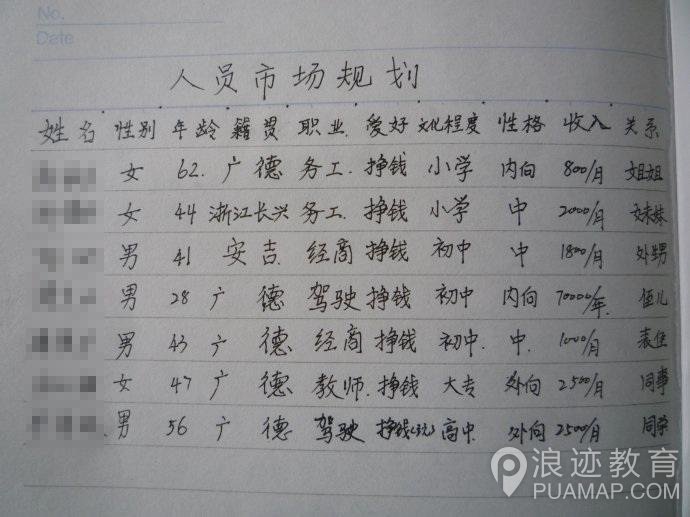 No.
Date
人员市场规划
姓名 性别 年龄 籍贯 职业 爱好 文化程度 性格 收入 关系
女 62. 广德 务工. 挣钱 小学 内向 800/月 姐姐
女 44 浙江长兴 务工. 挣钱 小学 中 2000/月 妹妹
男 41 安吉. 经商 挣钱 初中 中 1800/月 外甥
男 28 广德 驾驶 挣钱 初中 内向 70000/年. 侄儿
男 43 广德 经商 挣钱 初中. 中. 1000/月 表侄
女 47 广德 教师. 挣钱 大专 外向 2500/月 同事
男 56 广德 驾驶 挣钱 高中. 外向 2500/月 同学
浪迹教育
PUAMAP.COM